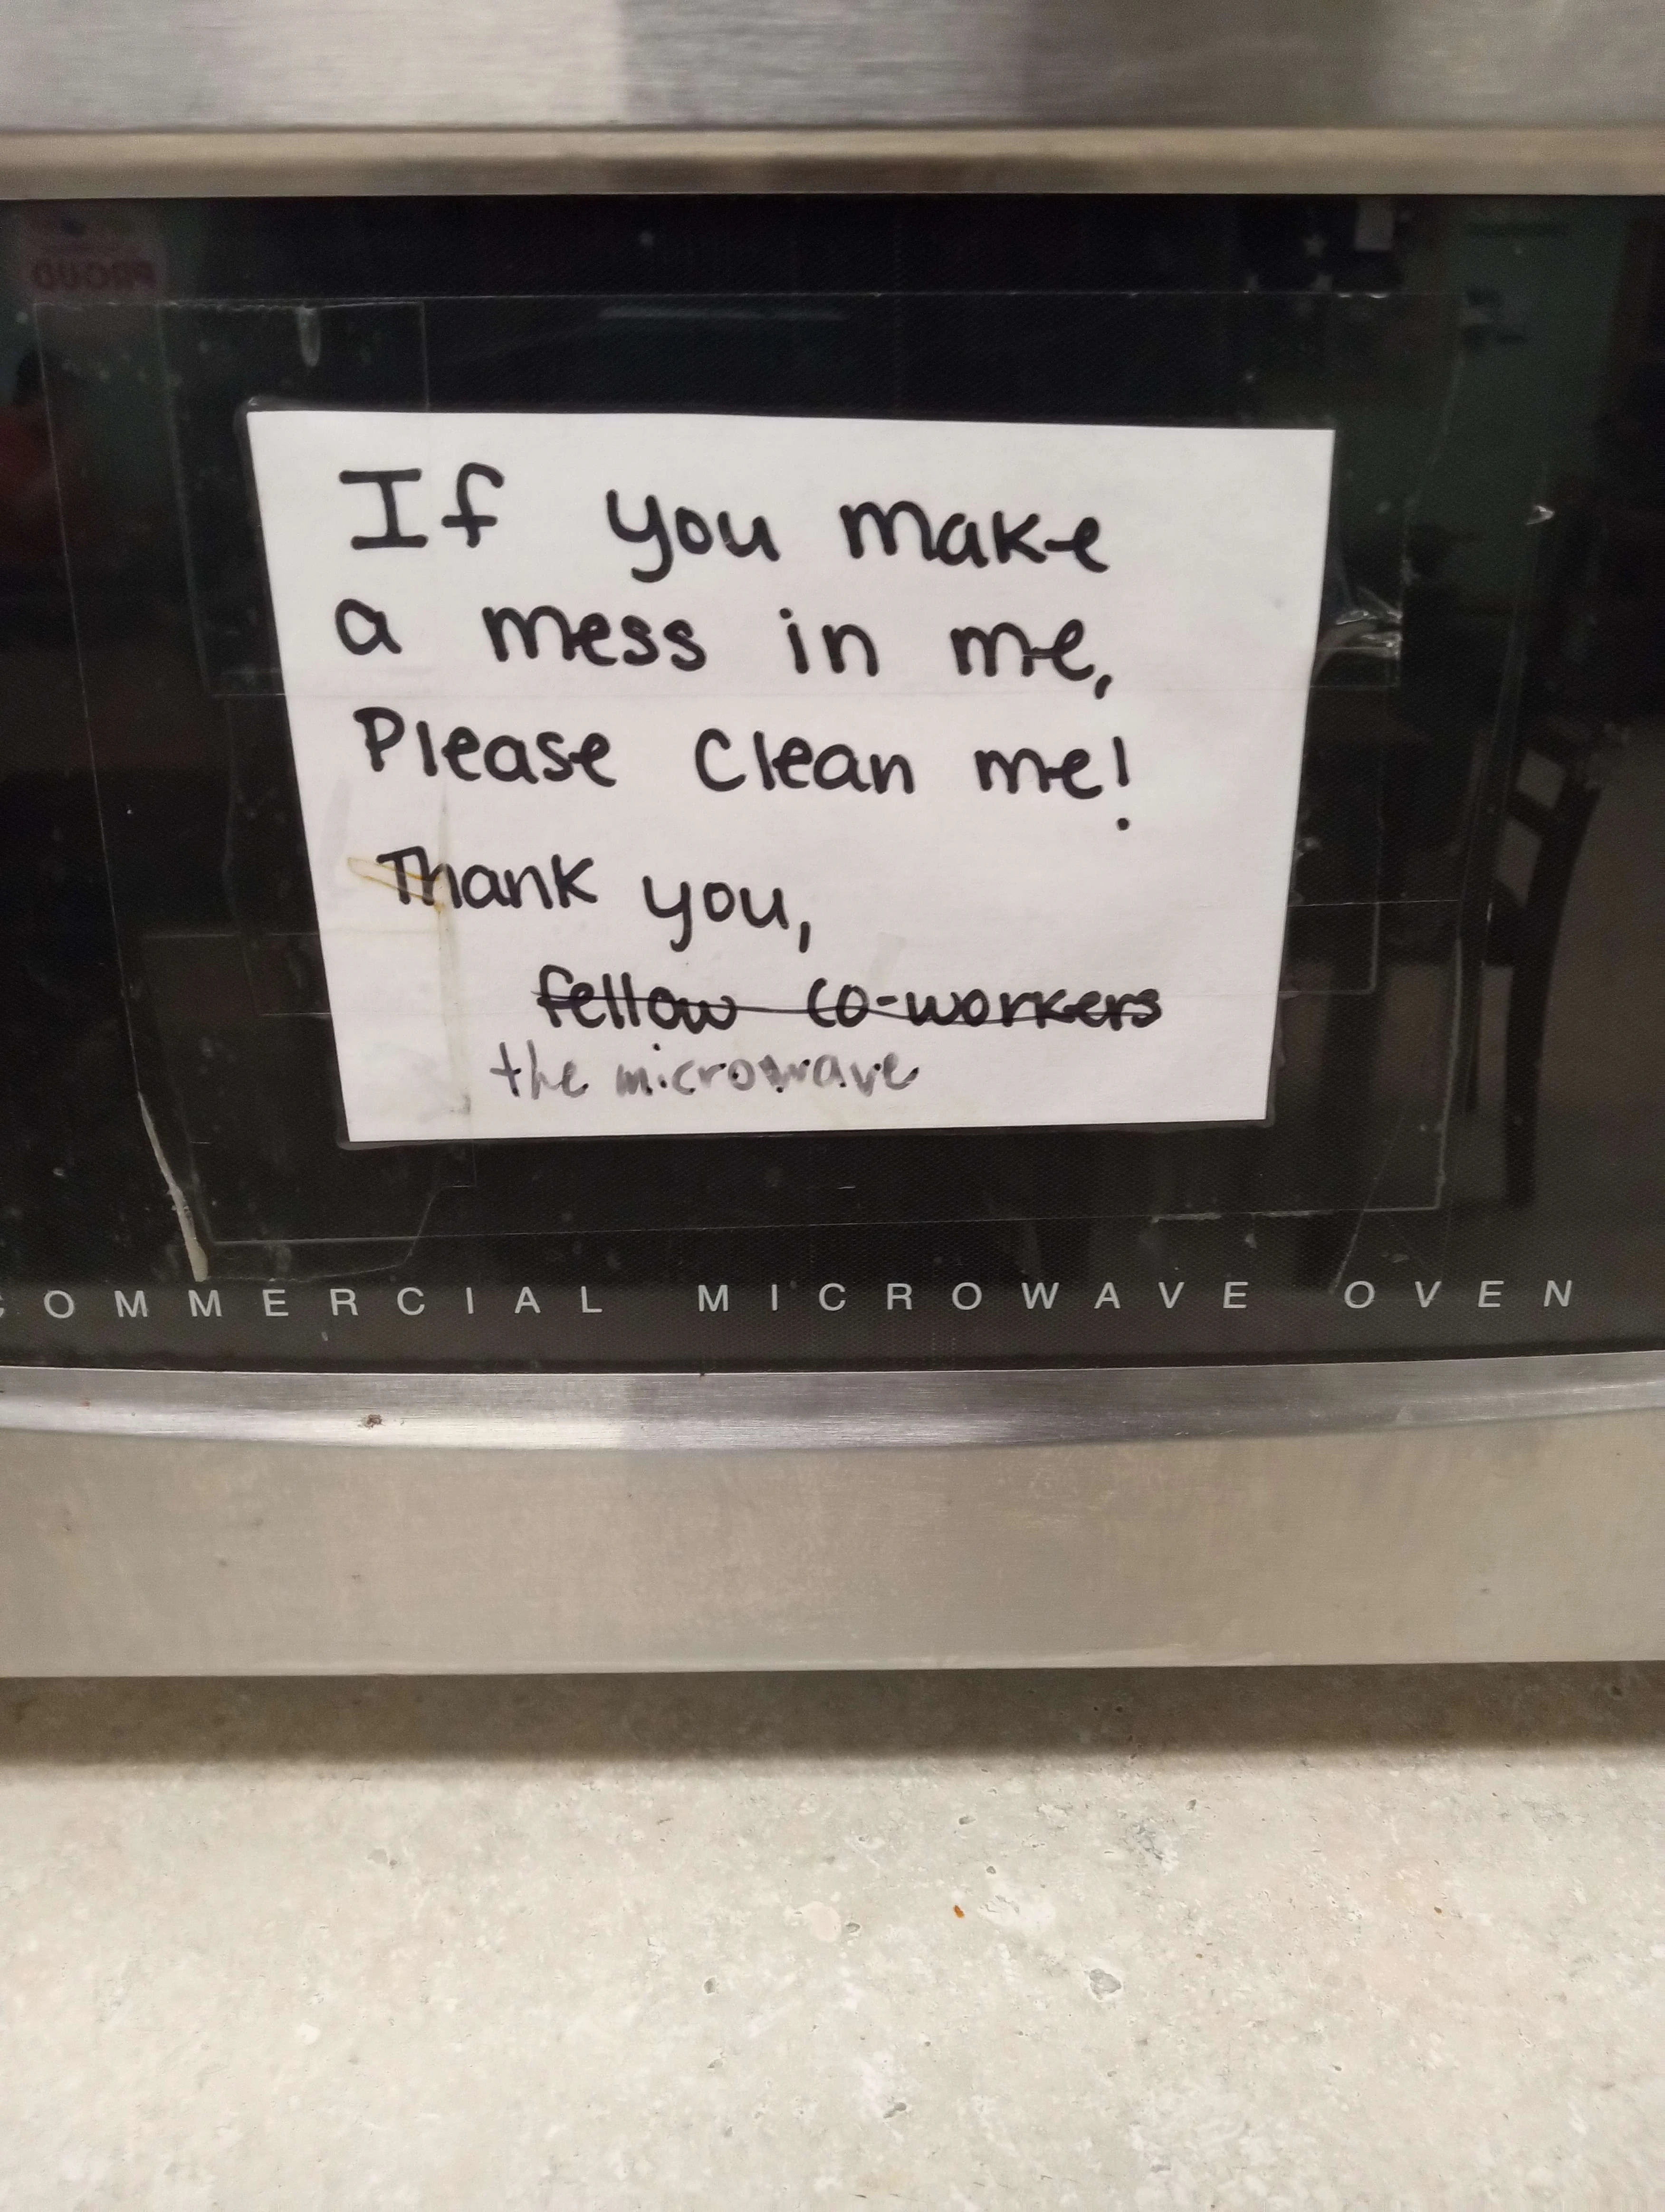 If you make
a mess in me,
Please clean me!
Thank you,
fellow co-workers
the microwave
COMMERCIAL MICROWAVE OVEN